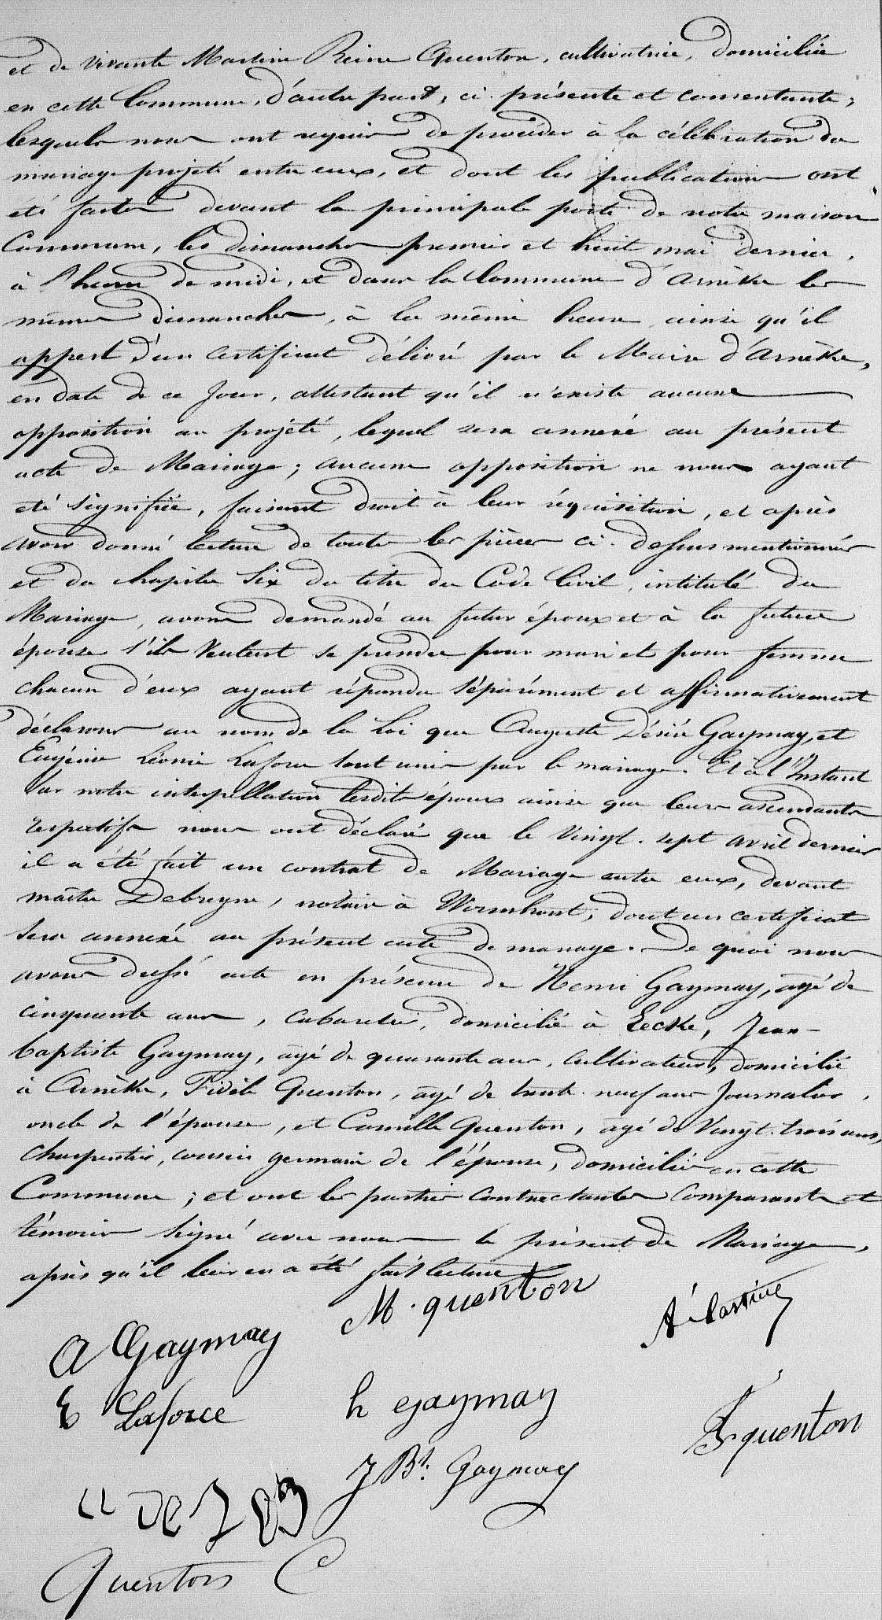 et de vivante Martine Reine Quenton, cultivatrice, domiciliée
en cette Commune, d'autre part, ci présente et consentante,
lesquels nous ont requis de procéder à la célébration du
mariage projeté entre eux, et dont les publications ont
été faites devant la principale porte de notre maison
Commune, les dimanches premier et huit mai dernier,
à l'heure de midi, et dans la Commune d'Arnèke les
mêmes dimanches, à la même heure, ainsi qu'il
appert d'un certificat délivré par le Maire d'Arnèke,
en date de ce jour, attestant qu'il n'existe aucune
opposition au projeté, lequel sera annexé au présent
acte de Mariage; aucune opposition ne nous ayant
été signifiée, faisant droit à leur réquisition, et après
avoir donné lecture de toutes les pièces ci-dessus mentionnées
et du chapitre six du titre du Code Civil, intitulé du
Mariage, avons demandé au futur époux et à la future
épouse s'ils veulent se prendre pour mari et pour femme
chacun d'eux ayant répondu séparément et affirmativement
déclarons au nom de la loi que Auguste Désiré Gaymay, et
Eugénie Léonie Laforce sont unis par le mariage. Et à l'instant
sur notre interpellation lesdits époux ainsi que leurs ascendants
respectifs nous ont déclaré que le vingt-sept avril dernier
il a été fait un contrat de Mariage entre eux, devant
maître Debreyne, notaire à Wormhout, dont un certificat
sera annexé au présent acte de mariage. De quoi nous
avons dressé acte en présence de Henri Gaymay, agé de
cinquante ans, cabaretier, domicilié à Eecke, Jean-
baptiste Gaymay, agé de quarante ans, cultivateur, domicilié
à Arnèke, Fidèle Quenton, agé de trente-neuf ans Journalier,
oncle de l'épouse, et Camille Quenton, agé de vingt-trois ans,
charpentier, cousin germain de l'épouse, domiciliés en cette
Commune; et ont les parties contractantes comparants et
témoins signé avec nous le présent de Mariage,
après qu'il leur en a été fait lecture
M. quenton
A Gaymay
E Laforce
h gaymay
F quenton
J Bt. Gaymay
Quenton C